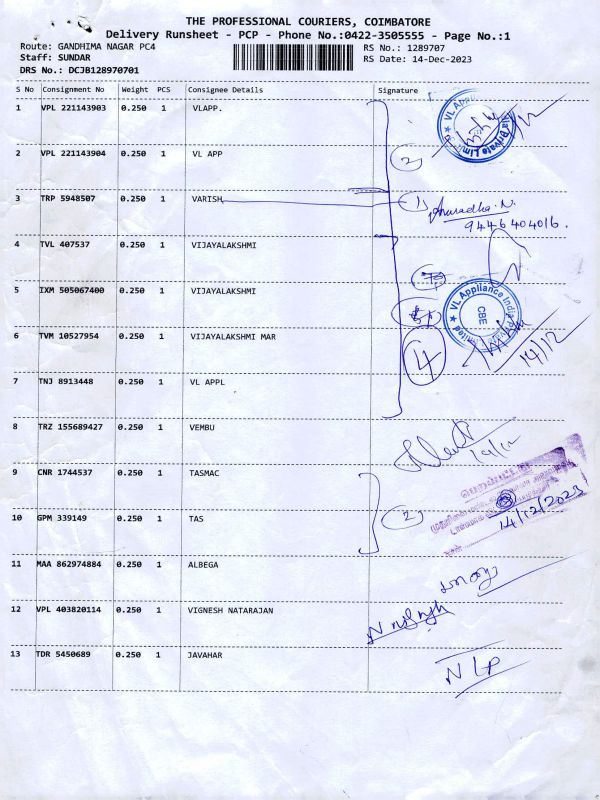 THE PROFESSIONAL COURIERS, COIMBATORE
Delivery Runsheet - PCP - Phone No.:0422-3505555 - Page No.:1
Route: GANDHIMA NAGAR PC4 RS No.: 1289707
Staff: SUNDAR RS Date: 14-Dec-2023
DRS No.: DCJB128970701
S No Consignment No Weight PCS Consignee Details Signature
1 VPL 221143903 0.250 1 VLAPP.
2 VPL 221143904 0.250 1 VL APP 2
3 TRP 5948507 0.250 1 VARISH 1) Anuradha.N.
9446404016.
4 TVL 407537 0.250 1 VIJAYALAKSHMI
5 IXM 505067400 0.250 1 VIJAYALAKSHMI
VL Appliance India CBE
6 TVM 10527954 0.250 1 VIJAYALAKSHMI MAR 4 14/12
7 TNJ 8913448 0.250 1 VL APPL
8 TRZ 155689427 0.250 1 VEMBU
9 CNR 1744537 0.250 1 TASMAC
10 GPM 339149 0.250 1 TAS 2 14/12/2023
11 MAA 862974884 0.250 1 ALBEGA
12 VPL 403820114 0.250 1 VIGNESH NATARAJAN
13 TDR 5450689 0.250 1 JAVAHAR NLP